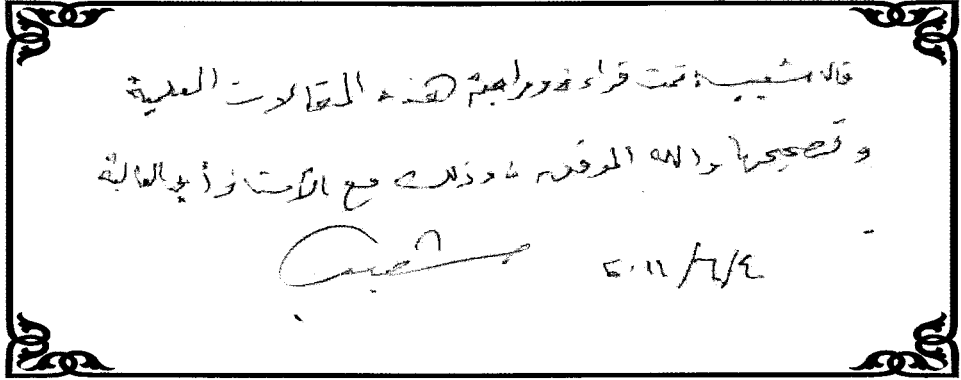 قال شعيب: تمت قراءة ومراجعة هذه المقالات العلمية
وتصحيحها والله الموفق، وذلك مع الأستاذ أبي العالية
شعيب ٢٠١١/٦/٤